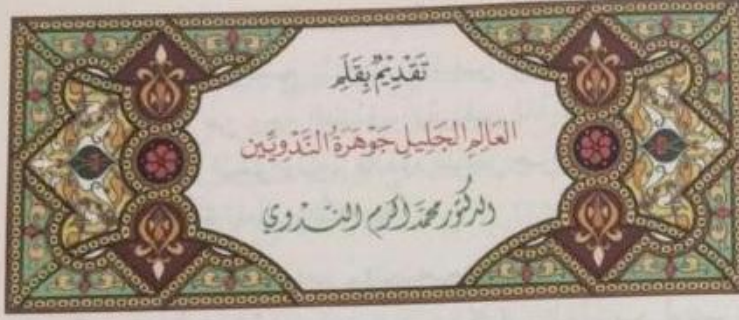 تَقْدِيْمٌ بِقَلَمِ
العَالِمِ الجَلِيْلِ جَوْهَرَةُ النَّدْوِيِّين
الدكتور محمد أكرم النَّدْوِي